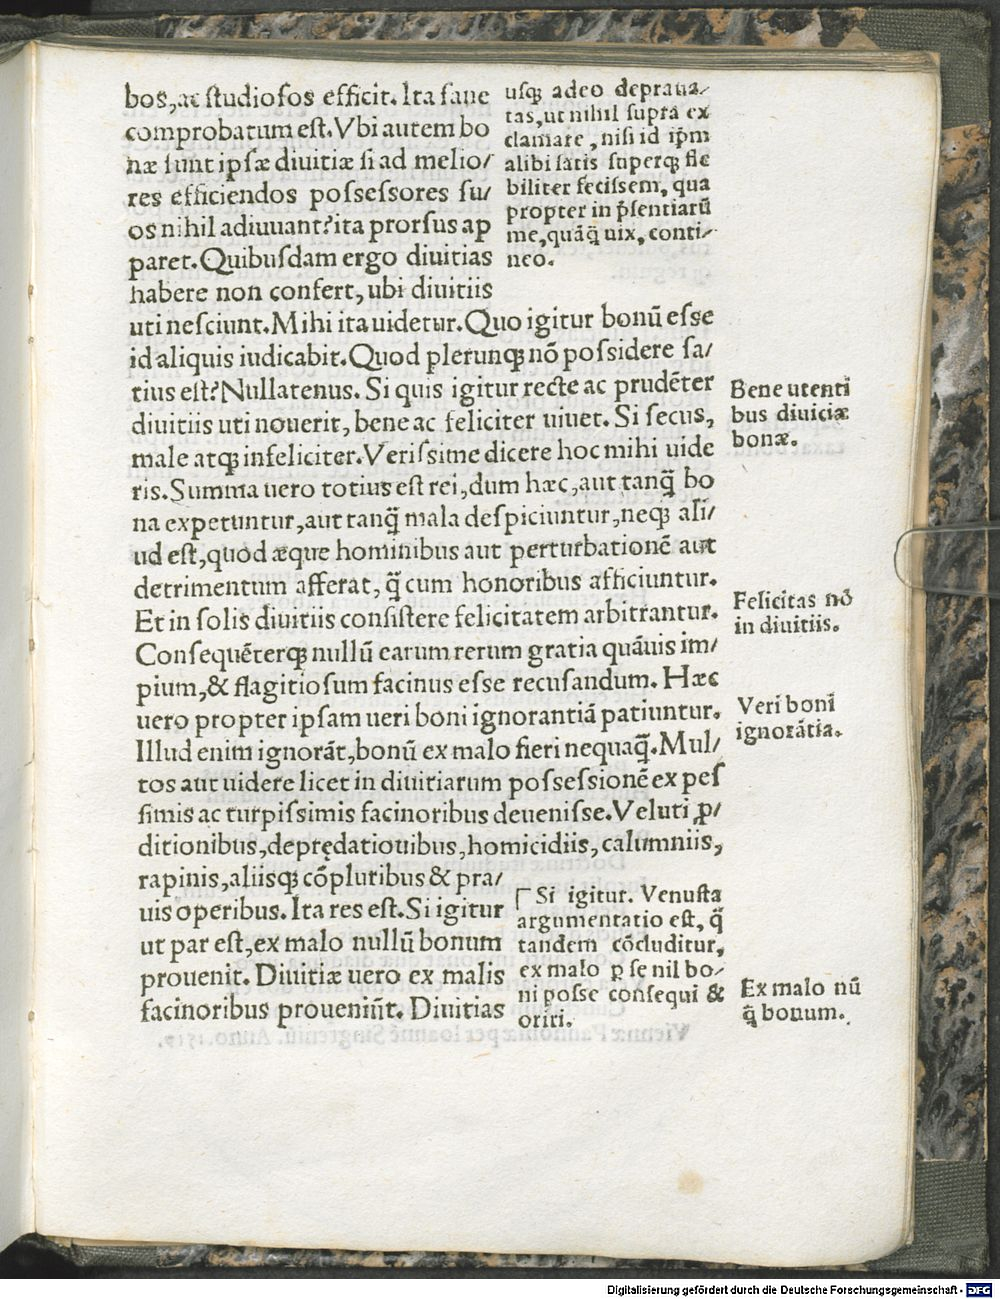 bos,ac studiosos efficit. Ita sane
comprobatum est. Vbi autem bo
næ sunt ipsæ diuitiæ si ad melio/
res efficiendos possessores su/
os nihil adiuuant? ita prorsus ap
paret. Quibusdam ergo diuitias
habere non confert, ubi diuitiis
uti nesciunt. Mihi ita uidetur. Quo igitur bonū esse
id aliquis iudicabit. Quod plerunqꝫ nō possidere sa/
tius est? Nullatenus. Si quis igitur recte ac prudēter
diuitiis uti nouerit, bene ac feliciter uiuet. Si secus,
male atqꝫ infeliciter. Verissime dicere hoc mihi uide
ris. Summa uero totius est rei, dum hæc, aut tanq̄ bo
na expetuntur, aut tanq̄ mala despiciuntur, neqꝫ ali/
ud est, quod æque hominibus aut perturbationē aut
detrimentum afferat, q̄ cum honoribus afficiuntur.
Et in solis diuitiis consistere felicitatem arbitrantur.
Consequēterqꝫ nullū earum rerum gratia quāuis im/
pium, & flagitiosum facinus esse recusandum. Hæc
uero propter ipsam ueri boni ignorantiā patiuntur.
Illud enim ignorāt, bonū ex malo fieri nequaq̄. Mul/
tos aut uidere licet in diuitiarum possessionē ex pes
simis ac turpissimis facinoribus deuenisse. Veluti ꝓ/
ditionibus, deprędationibus, homicidiis, calumniis,
rapinis, aliisqꝫ cōpluribus & pra/
uis operibus. Ita res est. Si igitur
ut par est, ex malo nullū bonum
prouenit. Diuitiæ uero ex malis
facinoribus proueniūt. Diuitias
usqꝫ adeo deprauа/
tas, ut nihil supra ex
clamare, nisi id ip̄m
alibi satis superqꝫ fle
biliter fecissem, qua
propter in p̄sentiarū
me, quāq̄ uix, conti/
neo.
Bene utenti
bus diuiciæ
bonæ.
Felicitas nō
in diuitiis.
Veri boni
ignorātia.
Si igitur. Venusta
argumentatio est, q̄
tandem cōcluditur,
ex malo ꝑ se nil bo/
ni posse consequi &
oriri.
Ex malo nū
q̄ bonum.
Digitalisierung gefördert durch die Deutsche Forschungsgemeinschaft - DFG